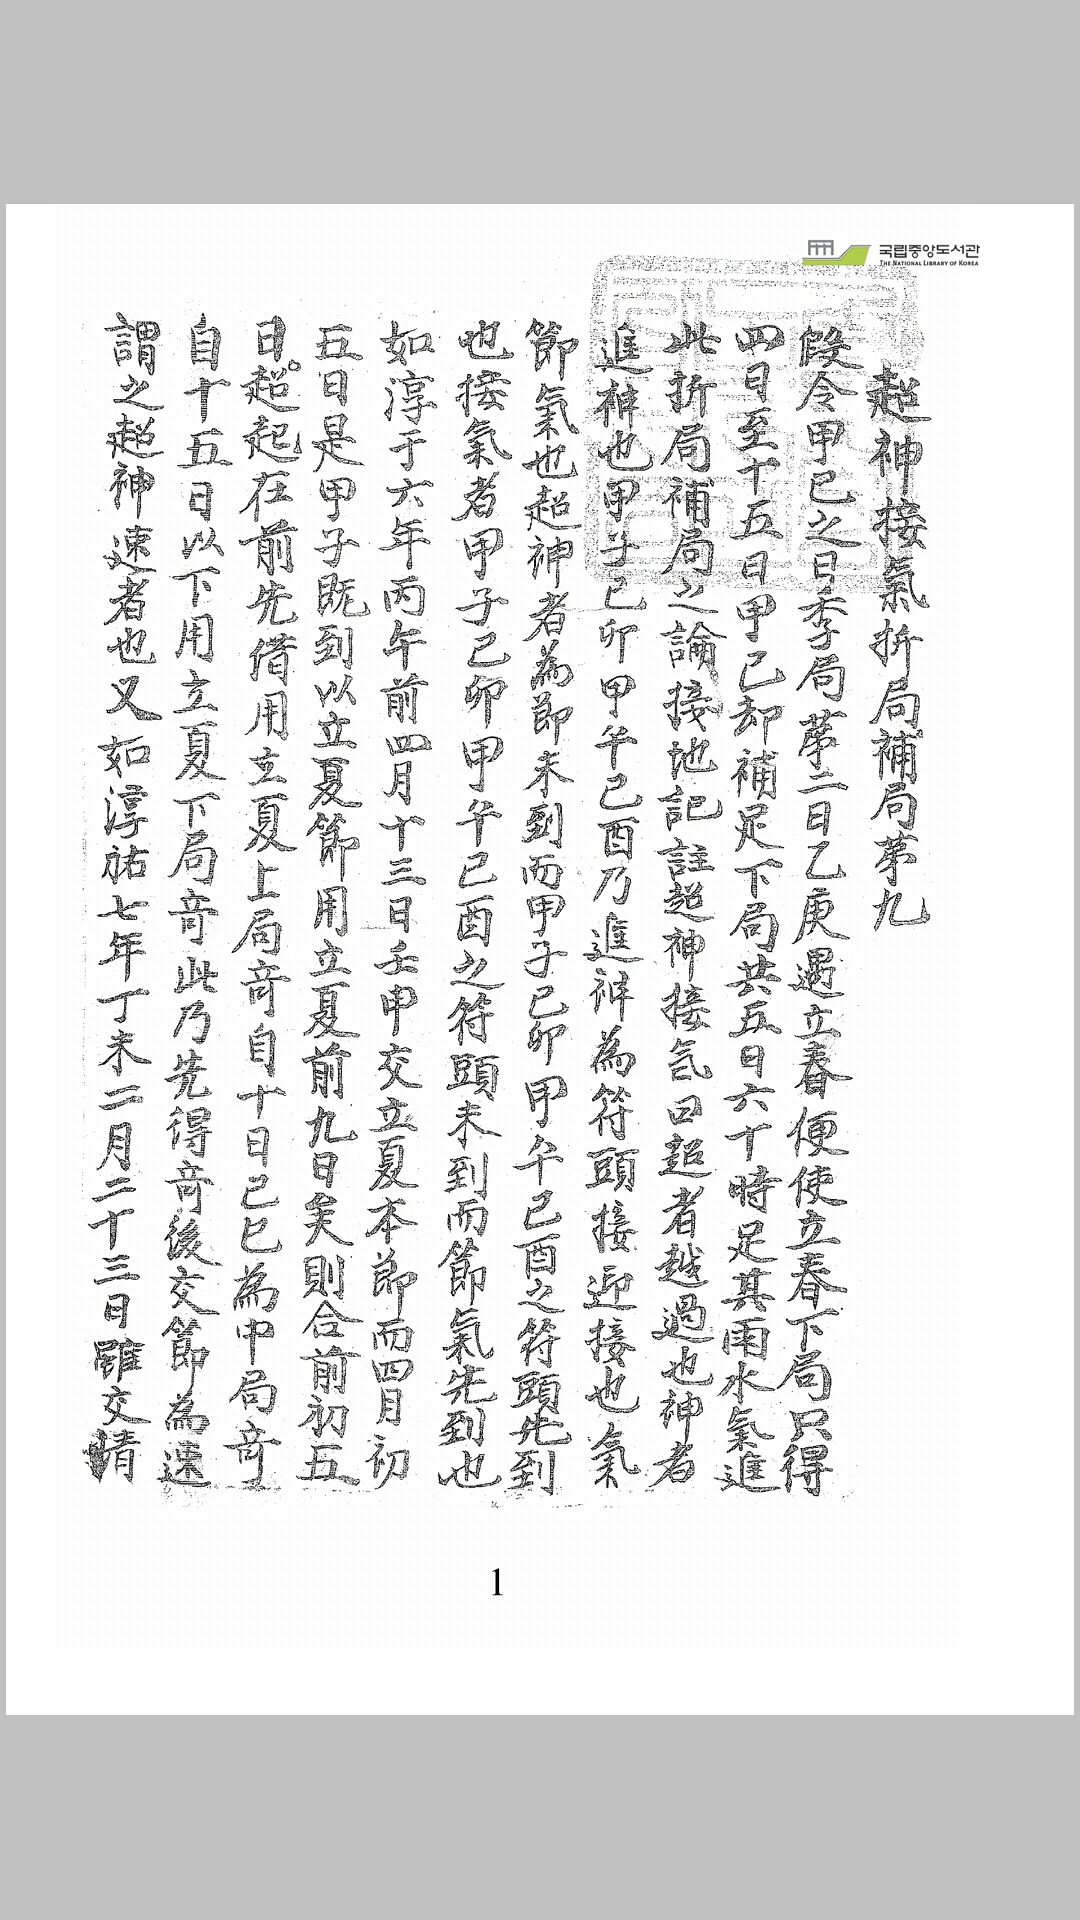 국립중앙도서관
THE NATIONAL LIBRARY OF KOREA
超神接氣折局補局苐九
假令甲已之日季局苐二日乙庚遇立春便使立春下局只得
四日至十五日甲已却補足下局共五日六十時足其雨水氣進
此折局補局之論接地記註超神接氣曰超者越過也神者
進神也甲子已卯甲午已酉乃進神為符頭接迎接也氣
節氣也超神者為節未到而甲子已卯甲午已酉之符頭先到
也接氣者甲子已卯甲午已酉之符頭未到而節氣先到也
如淳于六年丙午前四月十三日壬申交立夏本節而四月初
五日是甲子既到以立夏節用立夏前九日矣則合前初五
日超起在前先借用立夏上局竒自十日已巳為中局竒
自十五日以下用立夏下局竒此乃先得竒後交節為速
謂之超神速者也又如淳祐七年丁未二月二十三日雖交晴
1